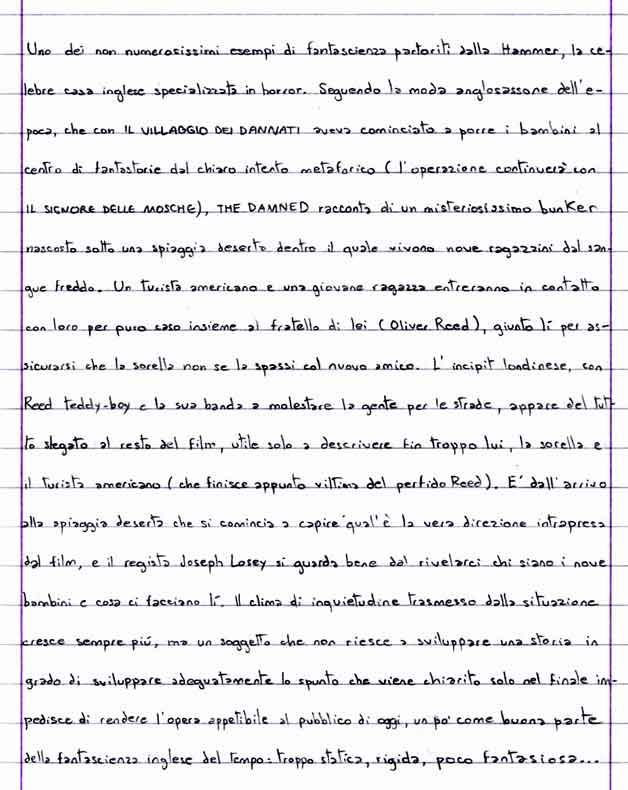 Uno dei non numerosissimi esempi di fantascienza partoriti dalla Hammer, la ce-
lebre casa inglese specializzata in horror. Seguendo la moda anglosassone dell'e-
poca, che con IL VILLAGGIO DEI DANNATI aveva cominciato a porre i bambini al
centro di fantastorie dal chiaro intento metaforico (l'operazione continuerà con
IL SIGNORE DELLE MOSCHE), THE DAMNED racconta di un misteriosissimo bunker
nascosto sotto una spiaggia deserta dentro il quale vivono nove ragazzini dal san-
gue freddo. Un turista americano e una giovane ragazza entreranno in contatto
con loro per puro caso insieme al fratello di lei (Oliver Reed), giunto lì per as-
sicurarsi che la sorella non se la spassi col nuovo amico. L'incipit londinese, con
Reed teddy-boy e la sua banda a molestare la gente per le strade, appare del tut-
to slegato al resto del film, utile solo a descrivere fin troppo lui, la sorella e
il turista americano (che finisce appunto vittima del perfido Reed). E' dall'arrivo
alla spiaggia deserta che si comincia a capire qual'è la vera direzione intrapresa
dal film, e il regista Joseph Losey si guarda bene dal rivelarci chi siano i nove
bambini e cosa ci facciano lì. Il clima di inquietudine trasmesso dalla situazione
cresce sempre più, ma un soggetto che non riesce a sviluppare una storia in
grado di sviluppare adeguatamente lo spunto che viene chiarito solo nel finale im-
pedisce di rendere l'opera appetibile al pubblico di oggi, un po' come buona parte
della fantascienza inglese del tempo: troppo statica, rigida, poco fantasiosa...